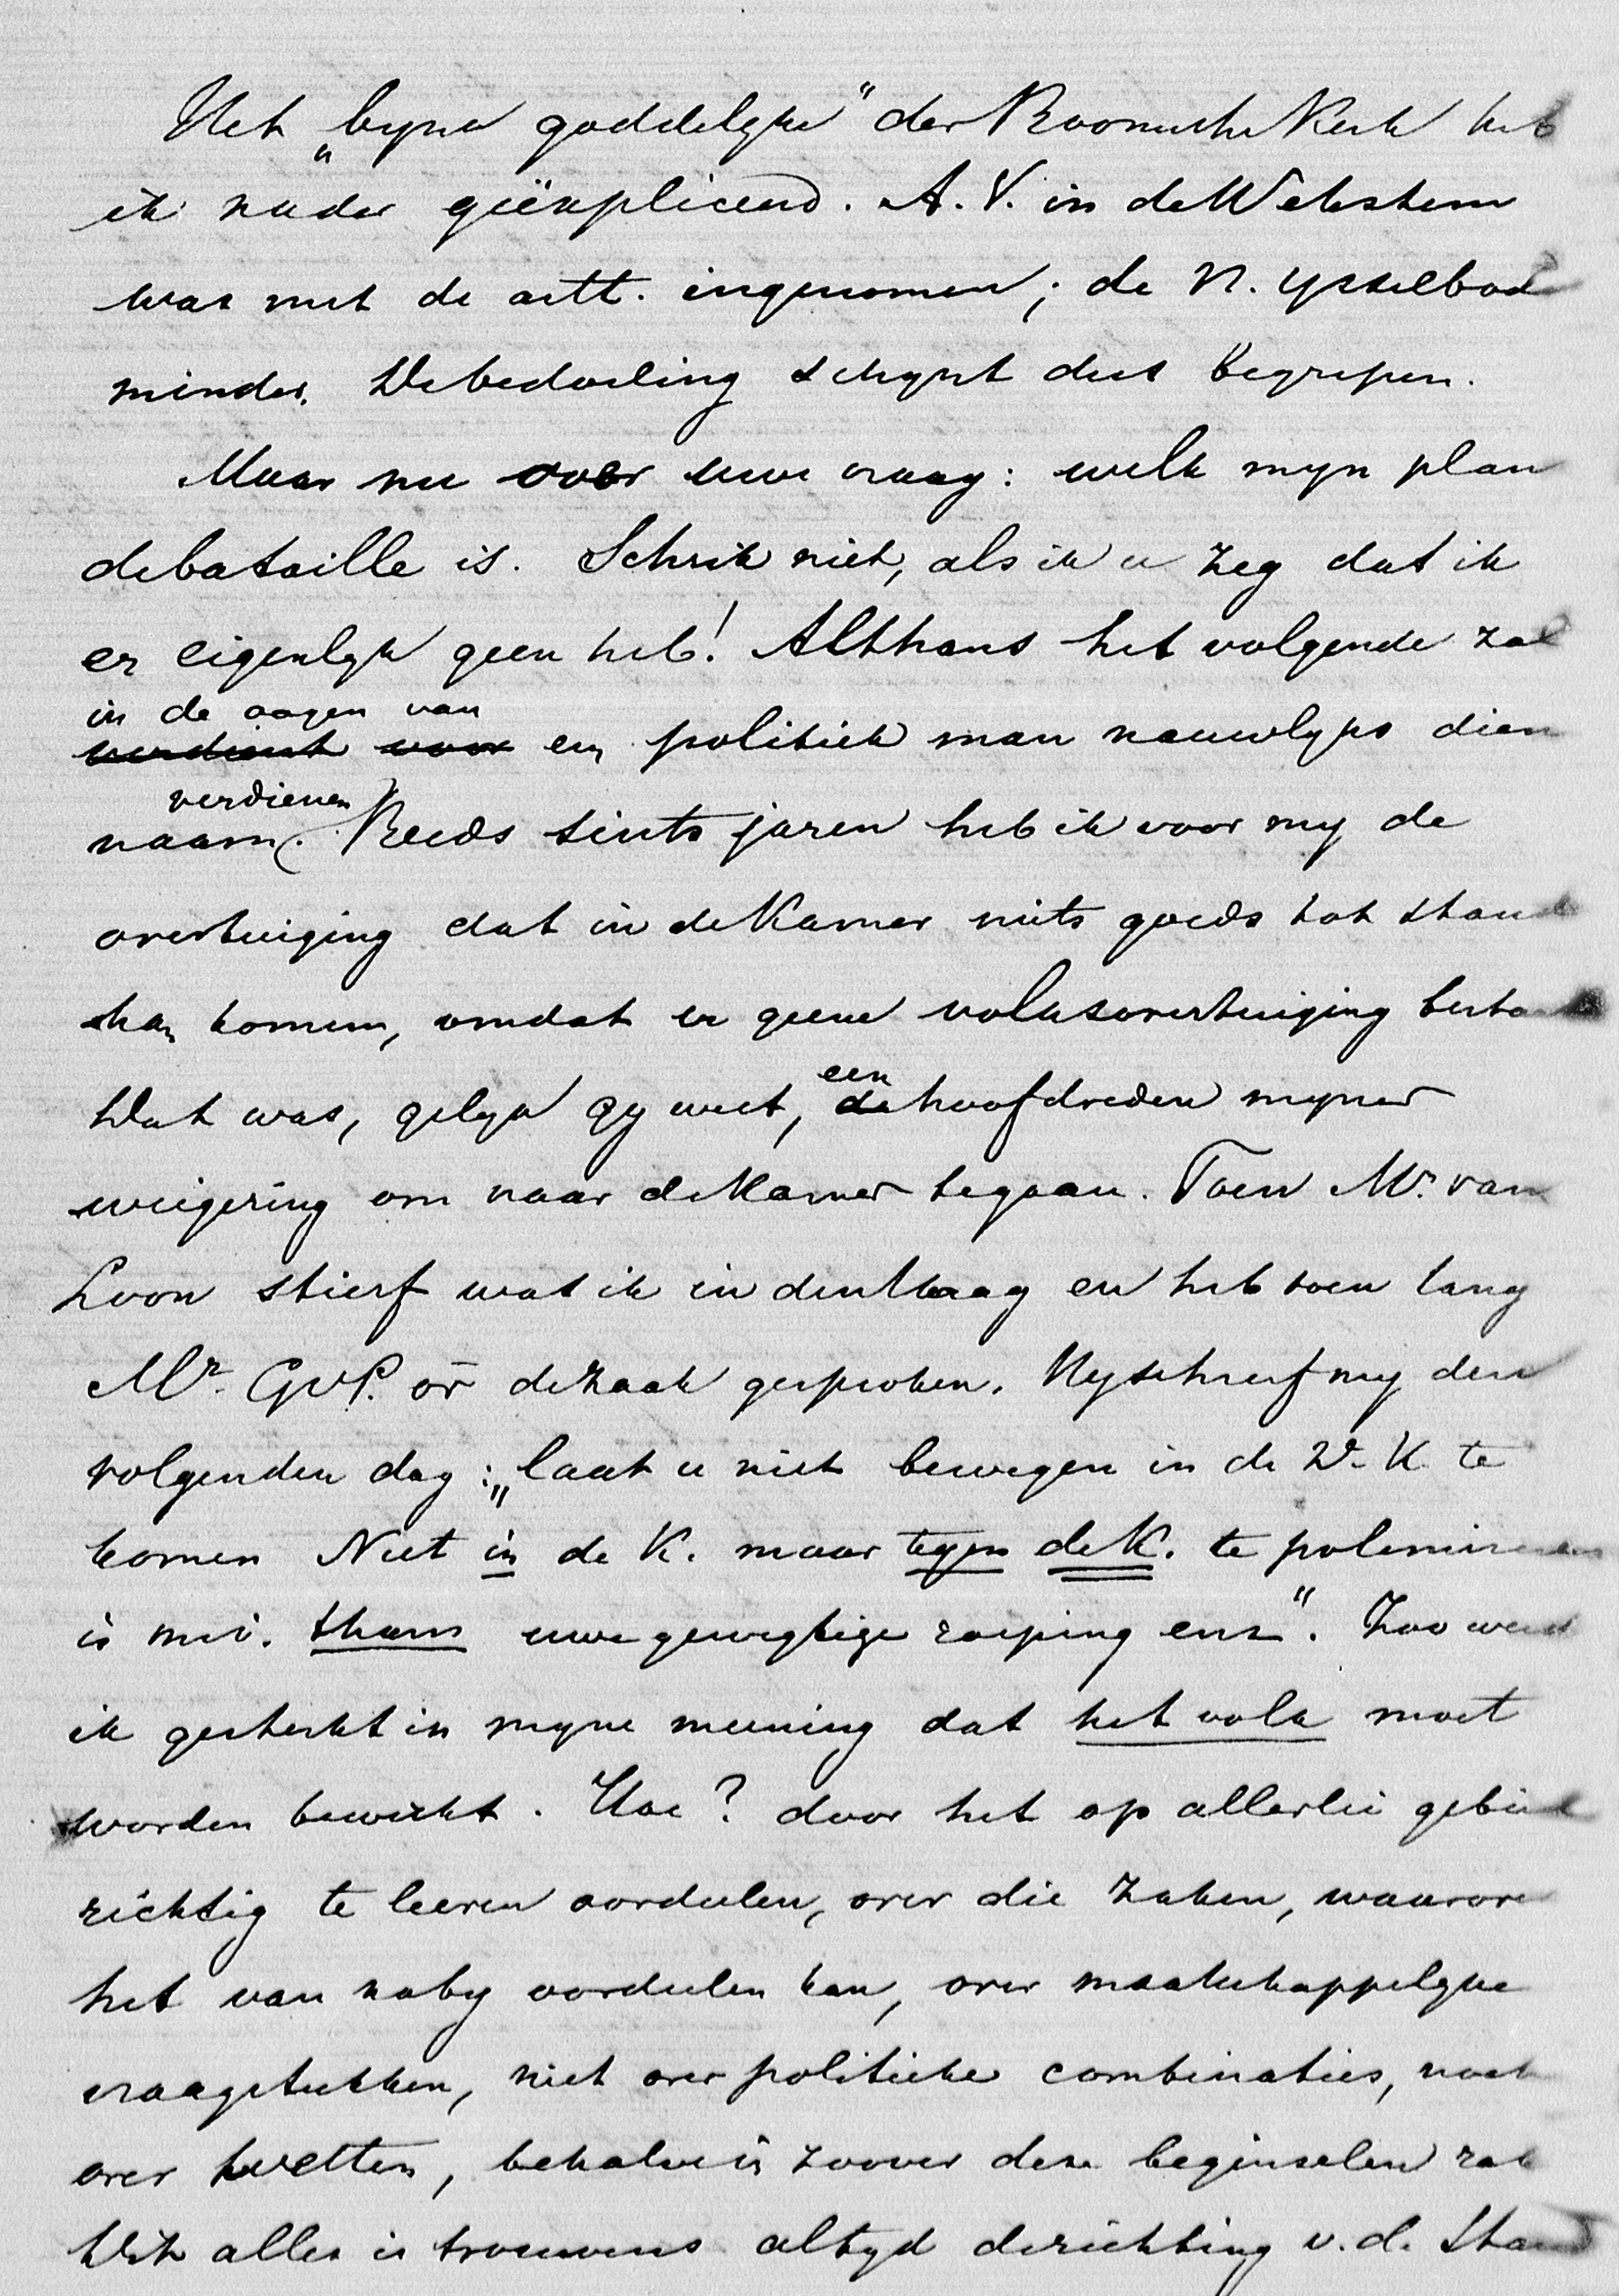 Het „byna goddelyke" der Roomsche Kerk heb
ik nader geëxpliceerd. A.V. in de Wekstem
was met de artt. ingenomen; de N. Ysselbode
minder. De bedoeling schynt dus begrepen.
Maar nu over uwe vraag: welk myn plan
de bataille is. Schrik niet, als ik u zeg dat ik
er eigenlyk geen heb! Althans het volgende zal
in de oogen van
verdient voor een politiek man nauwlyks dien
verdienen
naam. Reeds sints jaren heb ik voor my de
overtuiging dat in de Kamer niets goeds tot stand
kan komen, omdat er geene volksovertuiging bestaat
Dat was, gelyk gy weet, een
de hoofdreden myner
weigering om naar de Kamer te gaan. Toen Mr. van
Loon stierf was ik in den Haag en heb toen lang
Mr. GvP. ov̄r de zaak gesproken. Hy schreef my den
volgenden dag: „laat u niet bewegen in de 2e K. te
komen Niet in de K. maar tegen de K. te polemiseeren
is m.i. thans uwe gewigtige roeping enz". Zoo werd
ik gesterkt in myne meening dat het volk moet
worden bewerkt. Hoe? door het op allerlei gebied
richtig te leeren oordeelen, over die zaken, waarover
het van naby oordeelen kan, over maatschappelyke
vraagstukken, niet over politieke combinaties, noch
over wetten, behalve in zoover deze beginselen rak
Dit alles is trouwens altyd de richting v.d. Stand